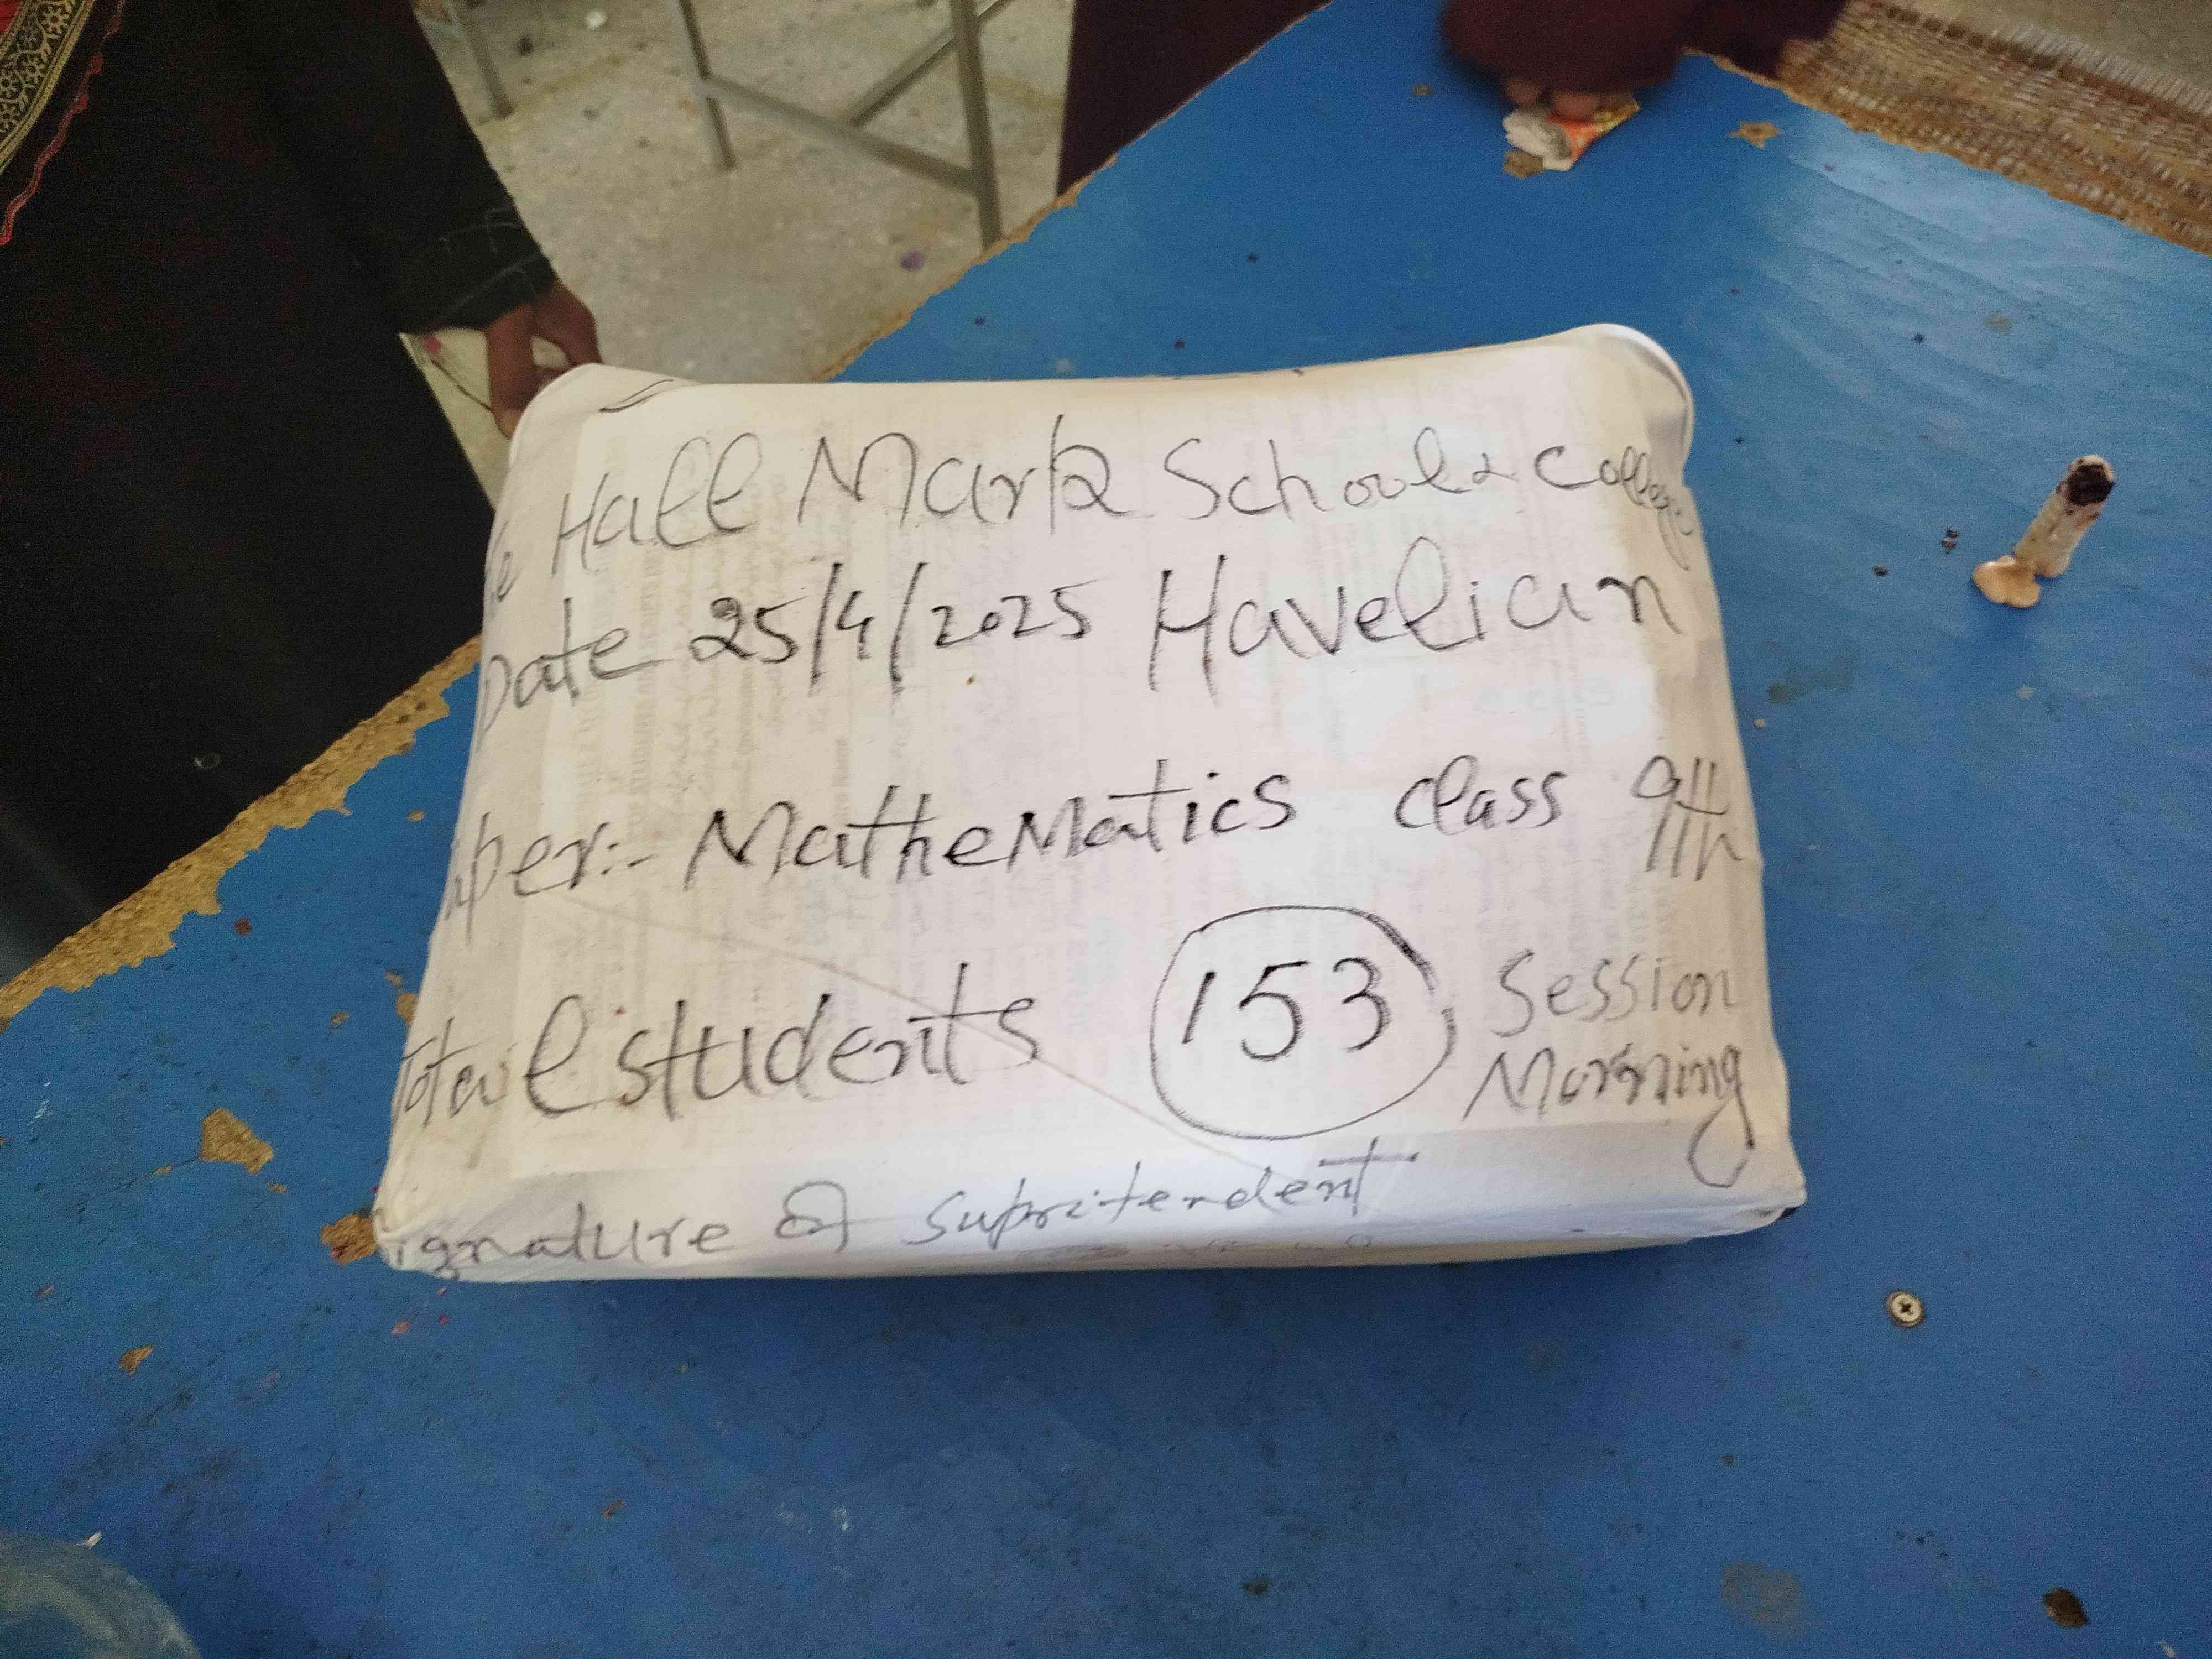 Hall Mark School & College
Date 25/4/2025 Havelian
aper:- MatheMatics class 9th
Total students 153 Session
Morning
ignature of Supritendent